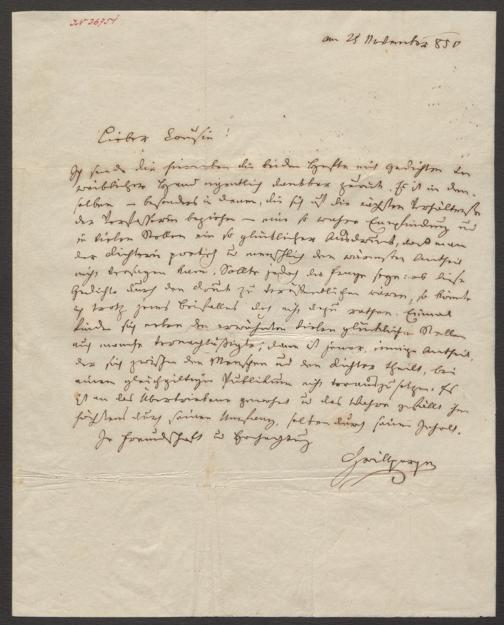 am 25 November 850
Lieber Cousin!
Ich sende dir hierneben die beiden Hefte mit Gedichten von
weiblicher Hand eigentlich dankbar zurück. Es ist in den-
selben – besonders in denen, die sich auf die nächsten Verhältnisse
der Verfasserin beziehen – eine so wahre Empfindung und
in vielen Stellen ein so glücklicher Ausdruck, daß man
der Dichterin poetisch u menschlich den wärmsten Antheil
nicht versagen kann. Sollte jedoch die Frage seyn: ob diese
Gedichte durch den Druck zu veröffentlichen wären, so könnte
ich trotz jenes Beifalles doch nicht dazu rathen. Einmal
finden sich neben den erwähnten vielen glücklichen Stellen
auch manche vernachläßigte; dann ist jener innige Antheil,
der sich zwischen den Menschen und den Dichter theilt, bei
einem gleichgiltigen Publikum nicht vorauszusetzen. Es
ist an das Übertriebene gewohnt u das Wahre gefällt ihm
höchstens durch seinen Umfang, selten durch seinen Inhalt.
In Freundschaft u Hochachtung
Grillparzer